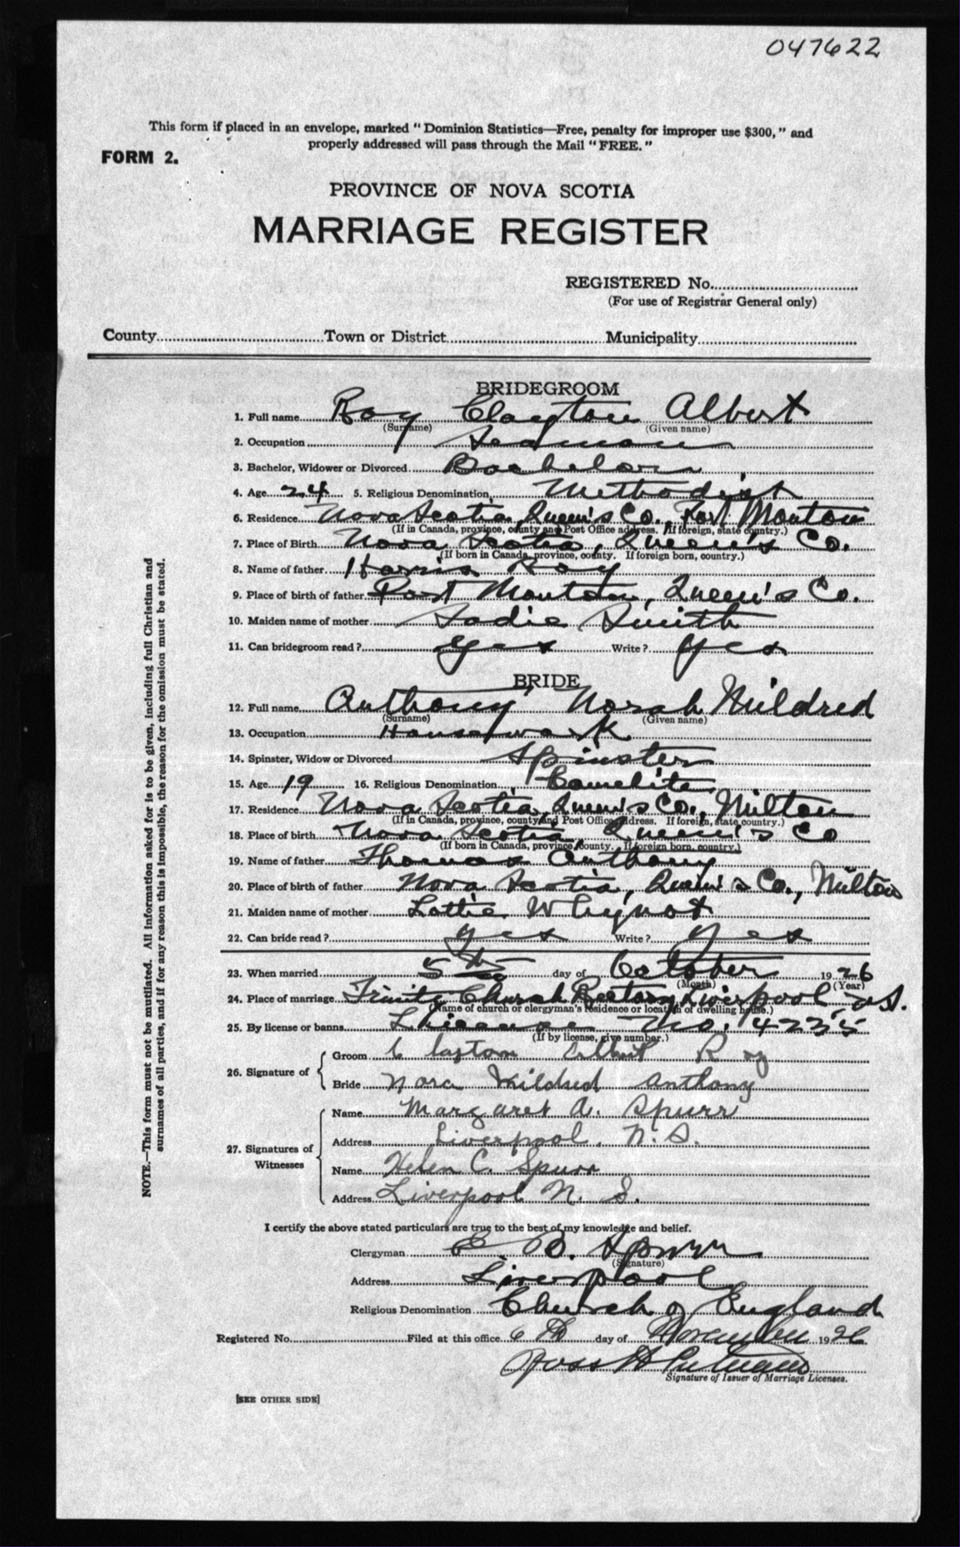 047622
This form if placed in an envelope, marked "Dominion Statistics—Free, penalty for improper use $300," and
properly addressed will pass through the Mail "FREE."
FORM 2.
PROVINCE OF NOVA SCOTIA
MARRIAGE REGISTER
REGISTERED No.
(For use of Registrar General only)
County Town or District Municipality
BRIDEGROOM
1. Full name Roy Clayton Albert
(Surname) (Given name)
2. Occupation Seaman
3. Bachelor, Widower or Divorced Bachelor
4. Age 24 5. Religious Denomination Methodist
6. Residence Nova Scotia, Queen's Co. Port Mouton
(If in Canada, province, county and Post Office address. If foreign, state country.)
7. Place of Birth Nova Scotia, Queen's Co.
(If born in Canada, province, county. If foreign born, country.)
8. Name of father Harris Roy
9. Place of birth of father Port Mouton, Queen's Co.
10. Maiden name of mother Sadie Smith
11. Can bridegroom read? yes Write? yes
BRIDE
12. Full name Anthony Norah Mildred
(Surname) (Given name)
13. Occupation Housework
14. Spinster, Widow or Divorced Spinster
15. Age 19 16. Religious Denomination
17. Residence Nova Scotia, Queen's Co., Milton
(If in Canada, province, county and Post Office address. If foreign, state country.)
18. Place of birth Nova Scotia, Queen's Co
(If born in Canada, province, county. If foreign born, country.)
19. Name of father Thomas Anthony
20. Place of birth of father Nova Scotia, Queen's Co., Milton
21. Maiden name of mother Lottie Whynot
22. Can bride read? yes Write? yes
23. When married 5th day of October 1926
(Month) (Year)
24. Place of marriage Trinity Church Rectory Liverpool, N.S.
(Name of church or clergyman's residence or location of dwelling house.)
25. By license or banns License No. 4235
(If by license, give number.)
26. Signature of
Groom Clayton Albert Roy
Bride Nora Mildred Anthony
27. Signatures of Witnesses
Name Margaret A. Spurr
Address Liverpool, N.S.
Name Helen C. Spurr
Address Liverpool N. S.
NOTE.—This form must not be mutilated. All information asked for is to be given, including full Christian and
surnames of all parties, and if for any reason this is impossible, the reason for the omission must be stated.
I certify the above stated particulars are true to the best of my knowledge and belief.
Clergyman Spurr
(Signature)
Address Liverpool
Religious Denomination Church of England
Registered No. Filed at this office 6th day of November 1926
Ross
Signature of Issuer of Marriage Licenses.
[SEE OTHER SIDE]